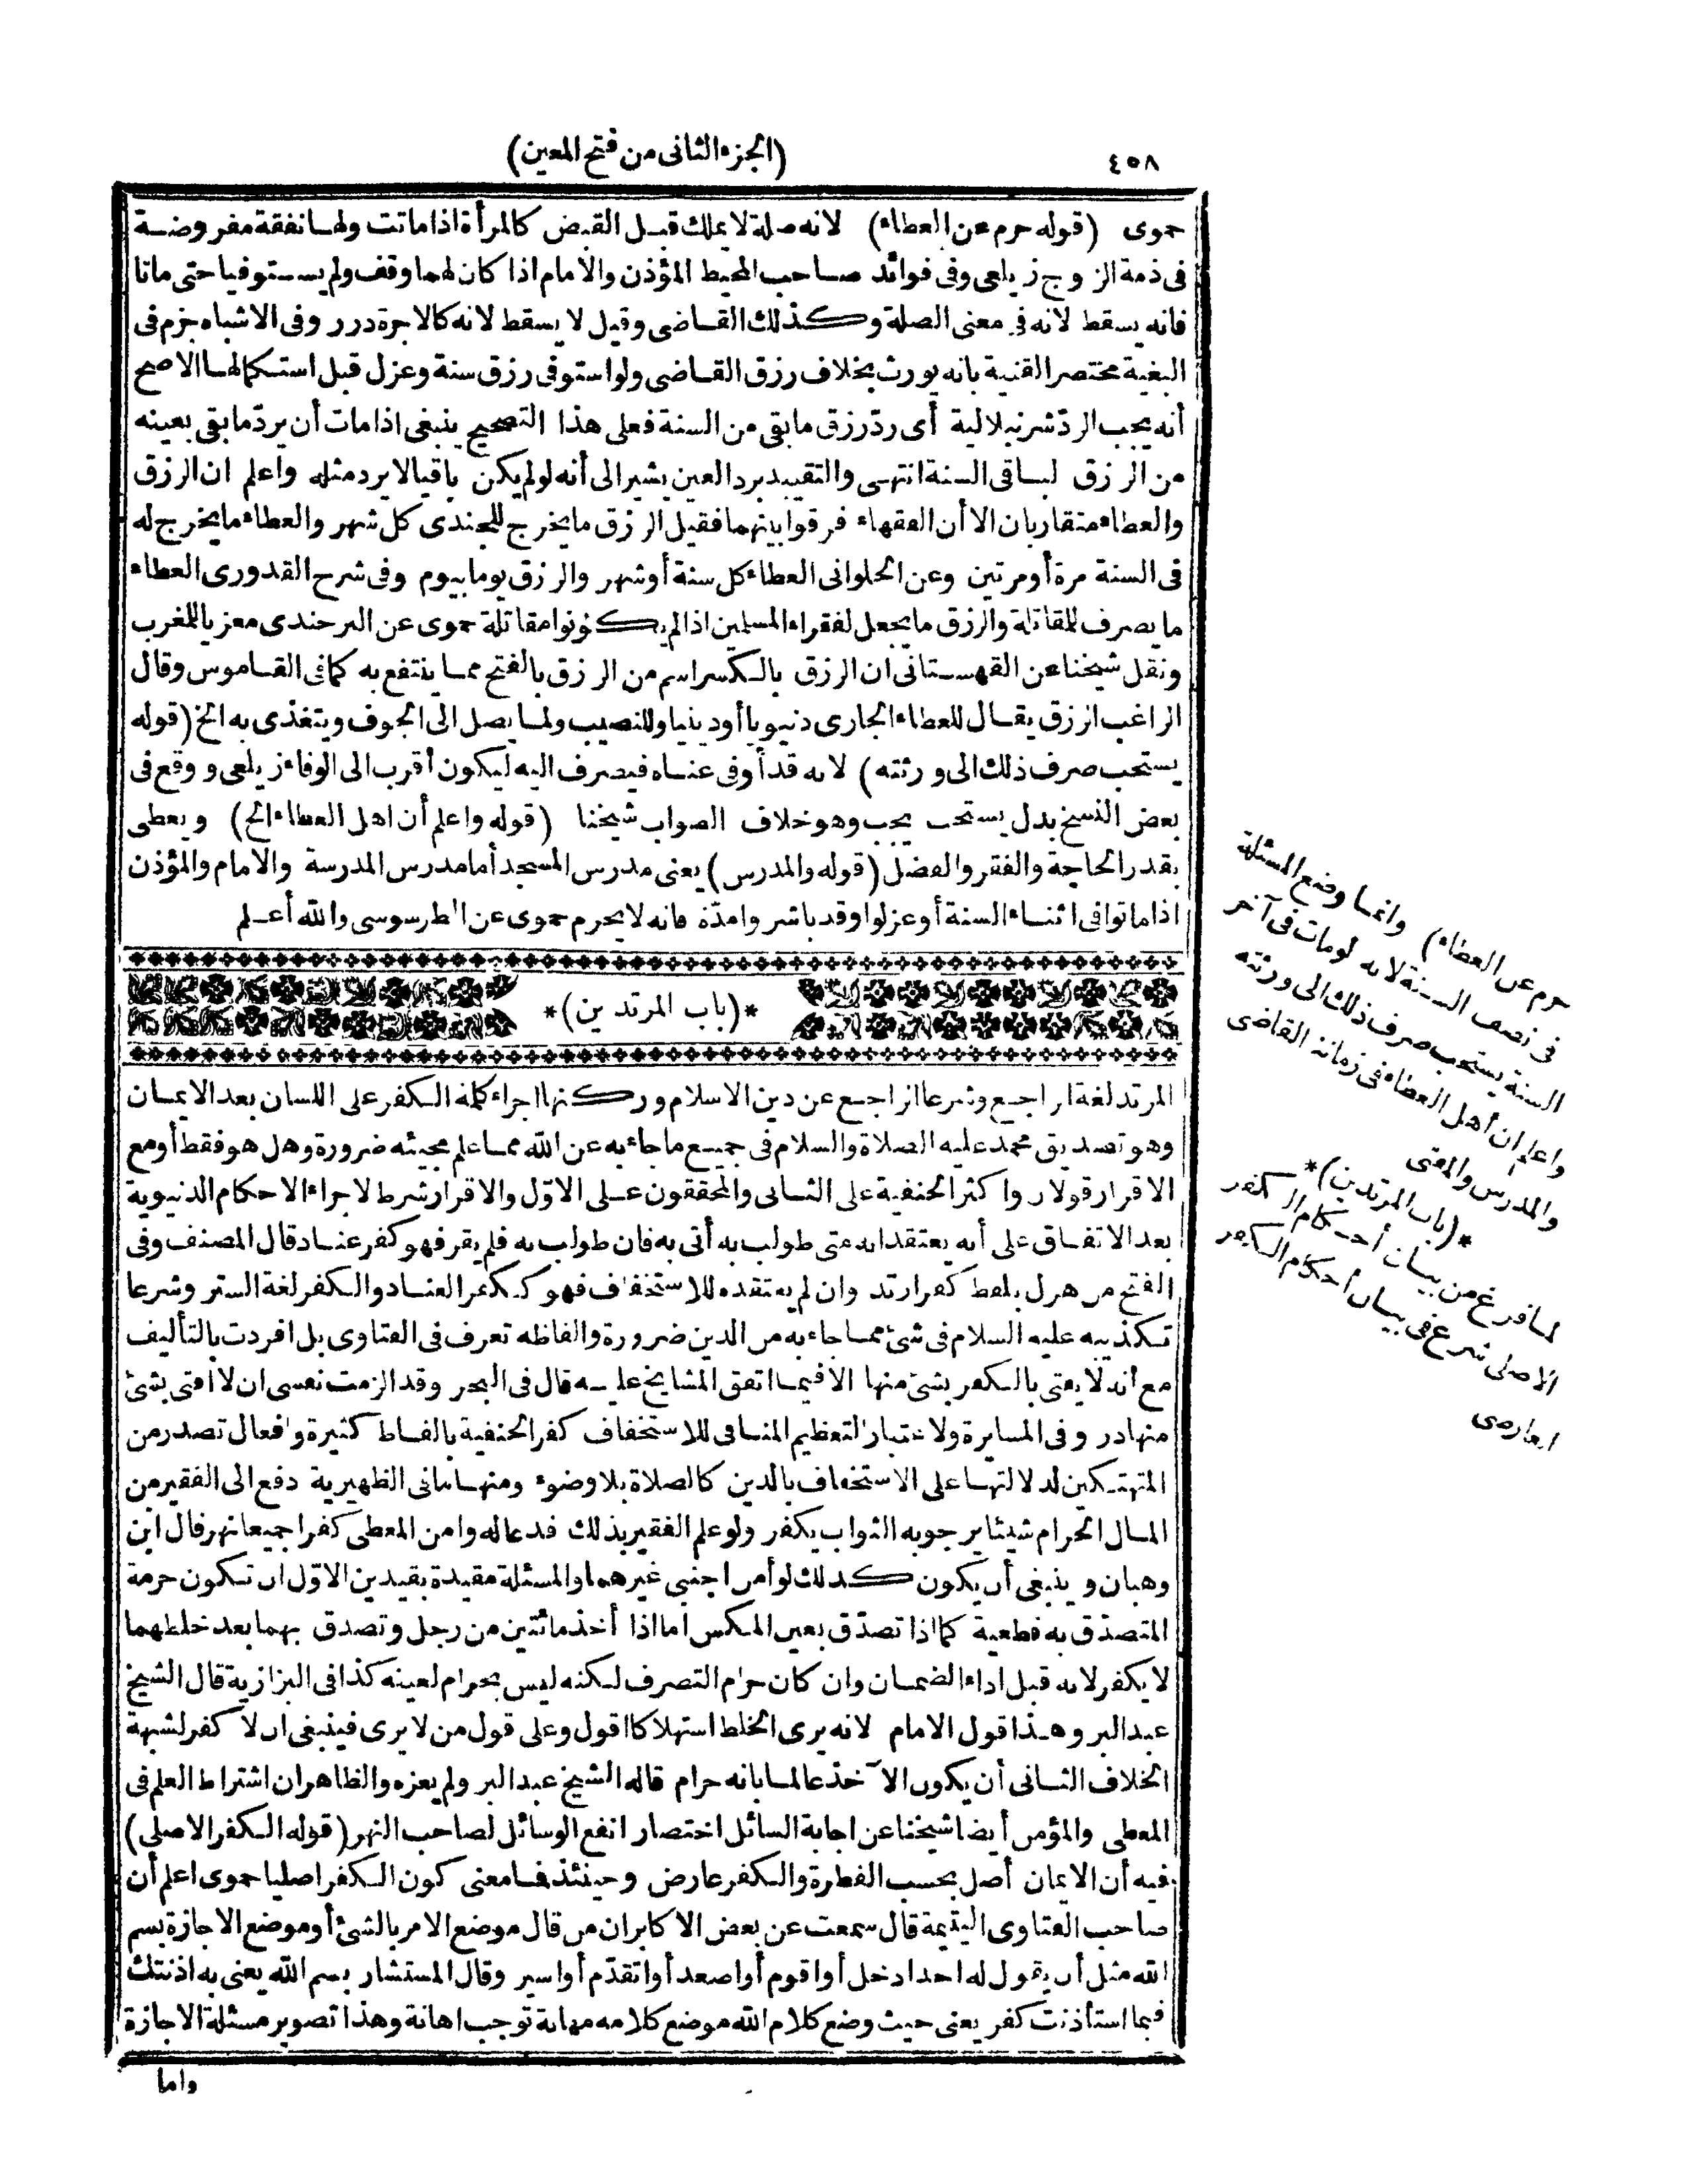 ٤٥٨
(الجزء الثانى من فتح المعين)
حموى (قوله حرم عن العطاء) لانه صلة لا يملك قبل القبض كالمرأة اذا ماتت ولها نفقة مفروضة
فى ذمة الزوج زيلعى وفى فوائد صاحب المحيط المؤذن والامام اذا كان لهما وقف ولم يستوفيا حتى ماتا
فانه يسقط لانه فى معنى الصلة وكذلك القاضى وقيل لا يسقط لانه كالاجرة درر وفى الاشباه جزم فى
البغية مختصر القنية بانه يورث بخلاف رزق القاضى ولو استوفى رزق سنة وعزل قبل استكمالها الاصح
أنه يجب الرد شرنبلالية أى ردّ رزق ما بقى من السنة فعلى هذا التصحيح ينبغى اذا مات أن يردّ ما بقى بعينه
من الرزق لباقى السنة انتهى والتقييد برد العين يشير الى أنه لو لم يكن باقيا لا يرد مثله واعلم ان الرزق
والعطاء متقاربان الا أن الفقهاء فرقوا بينهما فقيل الرزق ما يخرج للجندى كل شهر والعطاء ما يخرج له
فى السنة مرة أو مرتين وعن الحلوانى العطاء كل سنة أو شهر والرزق يوما بيوم وفى شرح القدورى العطاء
ما يصرف للمقاتلة والرزق ما يجعل لفقراء المسلمين اذا لم يكونوا مقاتلة حموى عن البرحندى معزيا للمغرب
ونقل شيخنا عن القهستانى ان الرزق بالكسر اسم من الرزق بالفتح مما ينتفع به كما فى القاموس وقال
الراغب الرزق يقال للعطاء الجارى دنيويا أو دينيا وللنصيب ولما يصل الى الجوف ويتغذى به الخ (قوله
يستحب صرف ذلك الى ورثته) لانه قد أوفى عناه فيصرف اليه ليكون أقرب الى الوفاء زيلعى ووقع فى
بعض النسخ بدل يستحب يجب وهو خلاف الصواب شيخنا (قوله واعلم أن اهل العطاء الخ) ويعطى
بقدر الحاجة والفقر والفضل (قوله والمدرس) يعنى مدرس المسجد أما مدرس المدرسة والامام والمؤذن
اذا ماتوا فى اثناء السنة أو عزلوا وقد باشروا مدّة فانه لا يحرم حموى عن الطرسوسى والله أعلم
*(باب المرتدين)*
المرتد لغة الراجع وشرعا الراجع عن دين الاسلام وركنها اجراء كلمة الكفر على اللسان بعد الايمان
وهو تصديق محمد عليه الصلاة والسلام فى جميع ما جاء به عن الله مما علم مجيئه ضرورة وهل هو فقط أو مع
الاقرار قولان واكثر الحنفية على الثانى والمحققون على الاوّل والاقرار شرط لاجراء الاحكام الدنيوية
بعد الاتفاق على أنه يعتقد انه متى طولب به أتى به فان طولب به فلم يقر فهو كفر عناد قال المصنف وفى
الفتح من هزل بلفظ كفر ارتد وان لم يعتقده للاستخفاف فهو ككفر العناد والكفر لغة الستر وشرعا
تكذيبه عليه السلام فى شئ مما جاء به من الدين ضرورة والفاظه تعرف فى الفتاوى بل افردت بالتأليف
مع أنه لا يفتى بالكفر بشئ منها الا فيما اتفق المشايخ عليه قال فى البحر وقد الزمت نفسى ان لا افتى بشئ
منها در وفى المسايرة ولاعتبار التعظيم المنافى للاستخفاف كفر الحنفية بالفاظ كثيرة وافعال تصدر من
المتهتكين لدلالتها على الاستخفاف بالدين كالصلاة بلا وضوء ومنها ما فى الظهيرية دفع الى الفقير من
المال الحرام شيئا يرجو به الثواب يكفر ولو علم الفقير بذلك فدعا له وامن المعطى كفرا جميعا نهر قال ابن
وهبان وينبغى أن يكون كذلك لو أمن اجنبى غيرهما والمسئلة مقيدة بقيدين الاوّل ان تكون حرمة
المتصدّق به قطعية كما اذا تصدّق بعين المكس اما اذا أخذ مائتين من رجل وتصدق بهما بعد خلطهما
لا يكفر لانه قبل اداء الضمان وان كان حرام التصرف لكنه ليس بحرام لعينه كذا فى البزازية قال الشيخ
عبد البر وهذا قول الامام لانه يرى الخلط استهلاكا اقول وعلى قول من لا يرى فينبغى ان لا كفر لشبهة
الخلاف الثانى أن يكون الآخذ عالما بانه حرام قاله الشيخ عبد البر ولم يعزه والظاهر ان اشتراط العلم فى
المعطى والمؤمن أيضا شيخنا عن اجابة السائل اختصار انفع الوسائل لصاحب النهر (قوله الكفر الاصلى)
فيه أن الايمان أصل بحسب الفطرة والكفر عارض وحينئذ فما معنى كون الكفر اصليا حموى اعلم أن
صاحب الفتاوى اليتيمة قال سمعت عن بعض الاكابر ان من قال موضع الامر بالشئ أو موضع الاجازة بسم
الله مثل أن يقول له احد ادخل أو اقوم أو اصعد أو اتقدّم أو اسير وقال المستشار بسم الله يعنى به اذنتك
فيما استأذنت كفر يعنى حيث وضع كلام الله موضع كلامه مهانة توجب اهانة وهذا تصوير مسئلة الاجازة
واما
حرم عن العطاء) وانما وضع المسئلة
فى نصف السنة لانه لو مات فى آخر
السنة يستحب صرف ذلك الى ورثته
واعلم ان أهل العطاء فى زماننا القاضى
والمدرس والمفتى
*(باب المرتدين)*
لما فرغ من بيان أحكام الكفر
الاصلى شرع فى بيان أحكام الكفر
العارضى